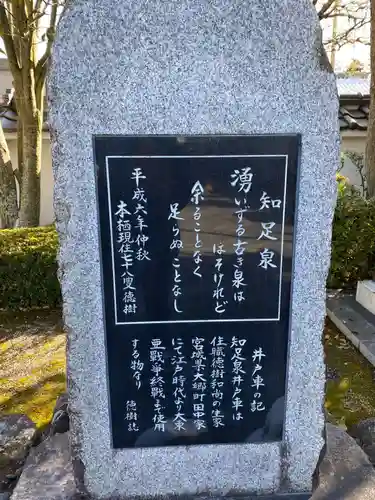 知足泉
湧いずる古き泉は
ほそけれど
余ることなく
足らぬことなし
平成六年仲秋
本楢現住七十八叟徳樹
井戸車の記
知足泉井戸車は
住職徳樹和尚の生家
宮城県大郷町田中家
にて江戸時代より大東
亜戦争終戦まで使用
する物なり
徳樹誌